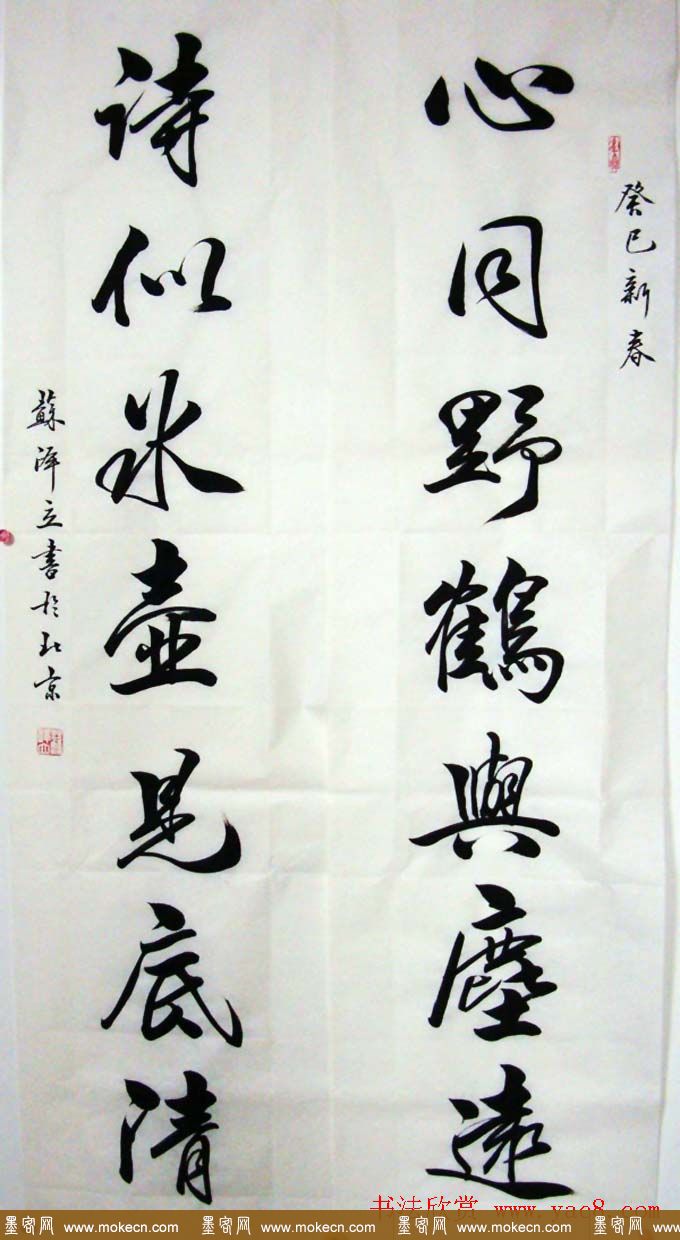 癸巳新春
心同野鶴與塵遠
詩似冰壺見底清
蘇澤立書於北京
书法欣赏 www.yac8.com
墨客网 www.mokecn.com 墨客网 www.mokecn.com 墨客网 www.mokecn.com